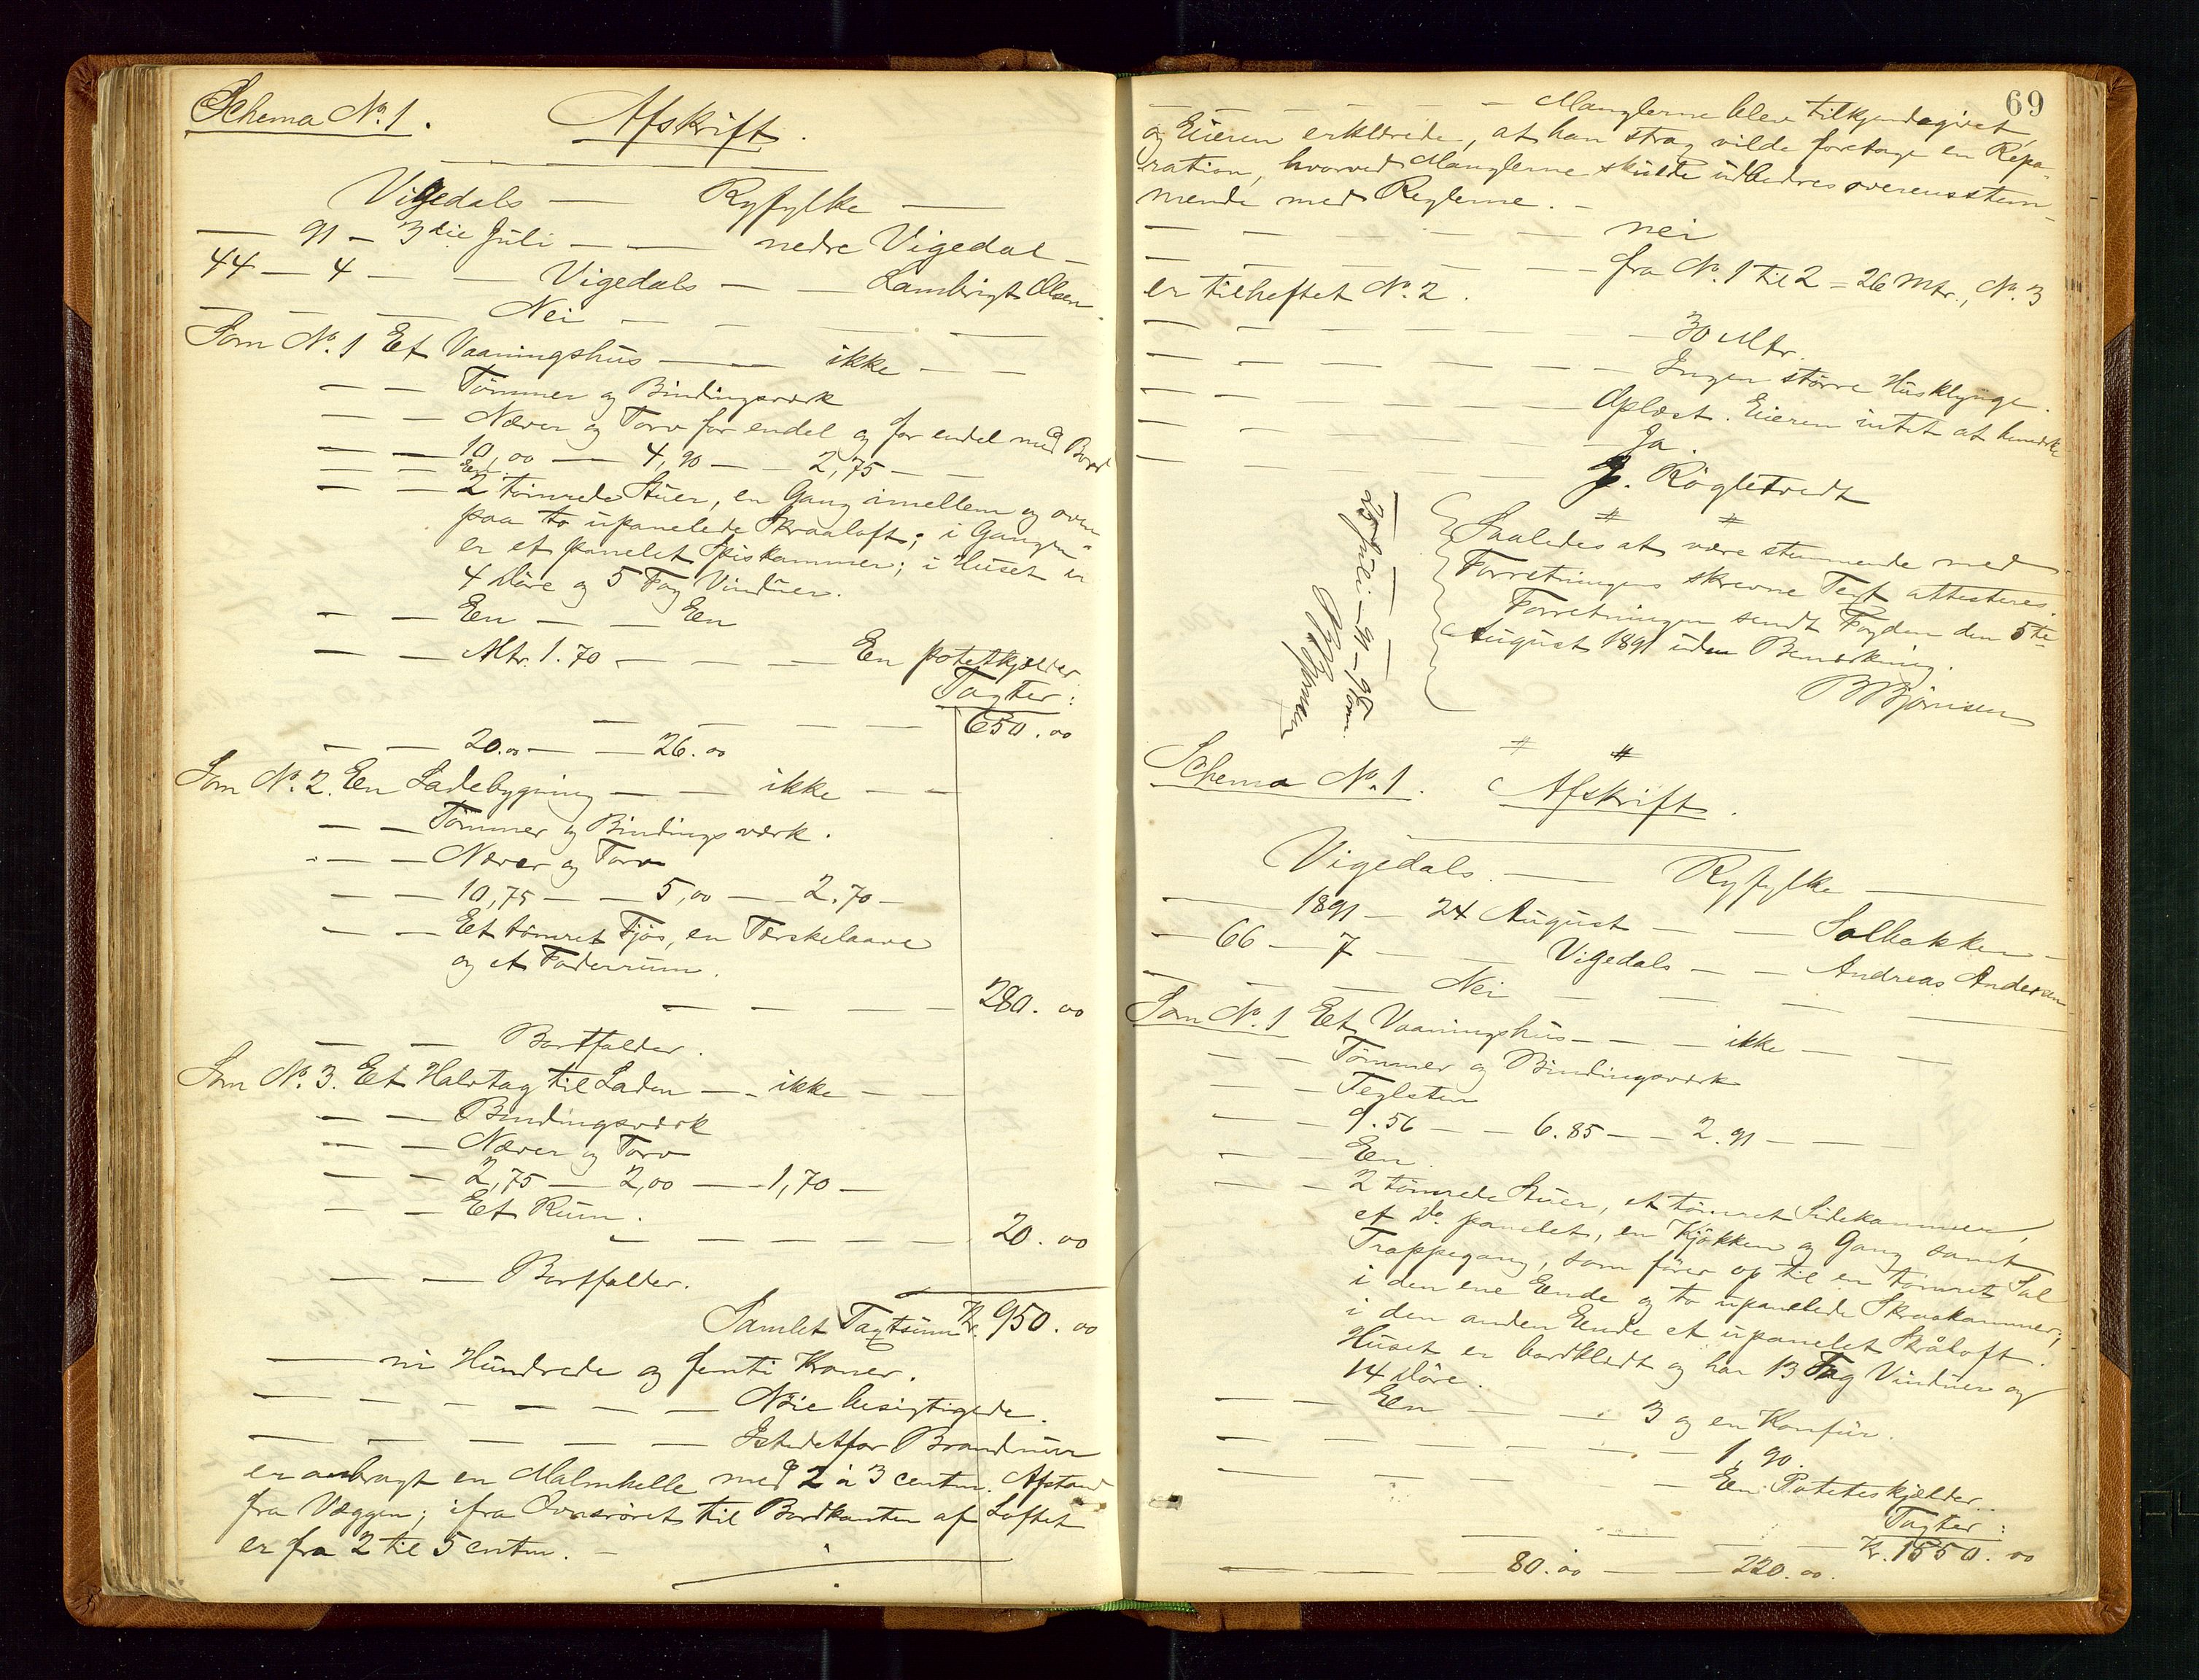 Schema No. 1. Afskrift.
Vigedals — Ryfylke —
— 91 — 3die Juli — — nedre Vigedal —
44 — 4 — — Vigedals — — Lambrigt Olsen
— — — Nei — — — — —
Som No. 1 Et Vaaningshus — — ikke — —
— — Tömmer og Bindingsværk
— — Næver og Torv for endel og for endel med Bord
— — 10,00 — 4,90 — — 2,75 — —
— — Een
— — 2 tömrede Stuer, en Gang imellem og oven
paa to upanelede Skraaloft; i Gangen
er et panelet Spiskammer; i Huset er
4 Döre og 5 Fag Vinduer.
— — Een — — Een
— — Mtr. 1.70 — — — — En potetkjælder
Taxter:
— — — — 650.00
— — 20.00 — — 26.00
Som No. 2. Een Ladebygning — — ikke — —
— — Tömmer og Bindingsværk.
— — Næver og Torv
— — 10,75 — — 5,00 — 2.70 —
— — Et tömret Fjös, en Tærskelaave
og et Foderrum.
— — — — 280.00
— — Bortfalder.
Som No. 3. Et Halvtag til Laden — — ikke — —
— — Bindingsværk
— — Næver og Torv
— — 2,75 — 2,00 — — 1,70 —
— — Et Rum.
— — — — — 20.00
— — Bortfalder.
Samlet Taxtsum Kr. 950.00
— ni Hundrede og femti Kroner.
— — — — — — — Nöie besigtigede.
— — — — — — — Istedetfor Brandmur
er anbragt en Malmhelle med 2 à 3 centm. Afstand
fra Væggen; ifra Ovnsröret til Bordkanten af Loftet
er fra 2 til 5 centm. —
69
— — — — — Manglerne blev tilkjendegivet,
og Eieren erklærede, at han strax vilde foretage en Repa-
ration, hvorved Manglerne skulde udbedres overensstem-
mende med Reglerne. —
— — — — — — nei
— — — — — — fra No. 1 til 2 = 26 Mtr., No. 3
er tilheftet No. 2.
— — — — — — 30 Mtr.
— — — — — — Ingen större Husklynge.
— — — — — — Oplæst. Eieren intet at bemærke
— — — — — — Ja.
— — — — — — J. Rögletvedt
# #
Saaledes at være stemmende med
Forretningens skrevne Text attesteres.
Forretningen sendt Fogden den 5te
August 1891 uden Bemærkning.
BBjörnsen
25 Juli — 91 —
# #
Schema No. 1. Afskrift.
Vigedals. — Ryfylke —
— 1891 — 24 August — — Solbakken —
— 66 — 7 — — Vigedals — — Andreas Andersen
— — — Nei — — — — —
Som No. 1 Et Vaaningshus — — — ikke — —
— — Tömmer og Bindingsværk
— Teglsten
— — 9.56 — — 6.85 — — 2.91 — —
— — Een.
— — 2 tömrede Stuer, et tömret Sidekammer,
et Do panelet, en Kjökken og Gang samt
Trappegang, som förer op til en tömret Sal
i den ene Ende og to upanelede Skraakammer;
i den anden Ende et upanelet Skråloft.
Huset er bordklædt og har 13 Fag Vinduer og
14 Döre.
— — Een — — 3 og en Komfur.
— — — — — — 1,90.
— — — — — — Een Poteteskjælder.
Taxter:
— — — — Kr. 1550.00
— — — 80.00 — — 220.00.